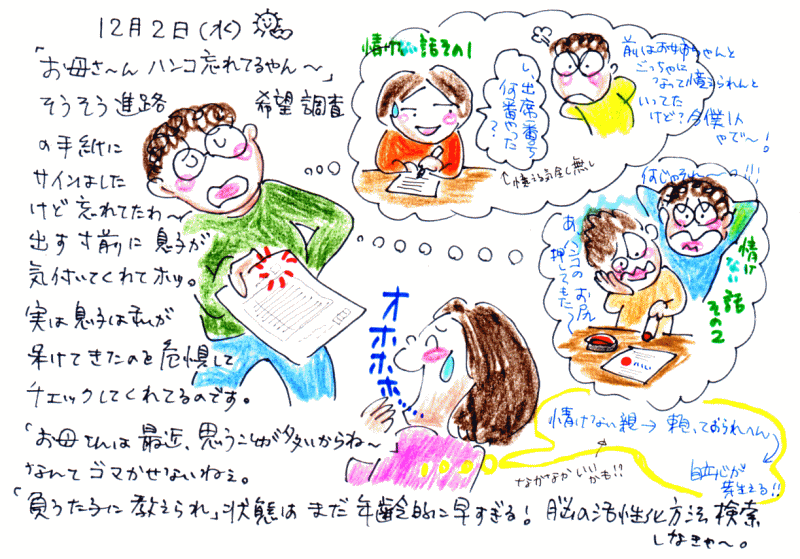 12月2日(水)
「お母さ～んハンコ忘れてるやん～」
そうそう進路希望調査
の手紙に
サインはした
けど忘れてたわ～
出す寸前に息子が
気付いてくれてホッ。
実は息子は私が
呆けてきたのを危惧して
チェックしてくれてるのです。
「お母さんは最近、思うことが多いからね～」
なんてゴマかせないねぇ。
「負うた子に教えられ」状態はまだ年齢的に早すぎる！脳の活性化方法検索
しなきゃ～。
情けない話その1
出席番号
何番やった
？
↑憶える気全く無し
前はお姉ちゃんと
ごっちゃに
なって憶えられんと
いってた
けど？今僕1人
やで～！
何じゃそれ～っ!!!
あ、ハンコのお尻
押してもた～
情け
ない
話
その2
オホホホッ…
情けない親→頼っておられへん
自立心が
芽生える!!
なかなかいいかも!!